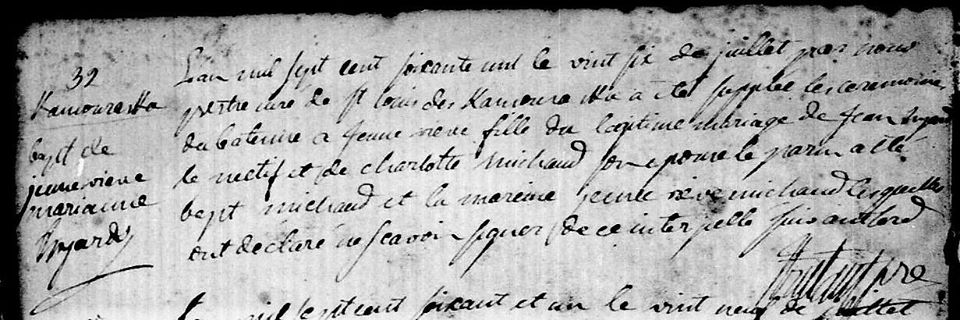 32
Kamouraska
bapt de
jeunevieve
marianne
L'an mil sept cent soixante unt le vint six de juillet par nous
pretre cure de st louis des Kamouraska a été supplée les ceremonies
du bateme a jeune vieve fille du legitime mariage de Jean
le nectif et de charlotte michaud son epouse le parin a été
bapt michaud et la mareine jeunevieve michaud lesquelles
ont declaré ne scavoir signer de ce interpellé suivant lord
L'an mil sept cent soixant et un le vint neuf de juillet